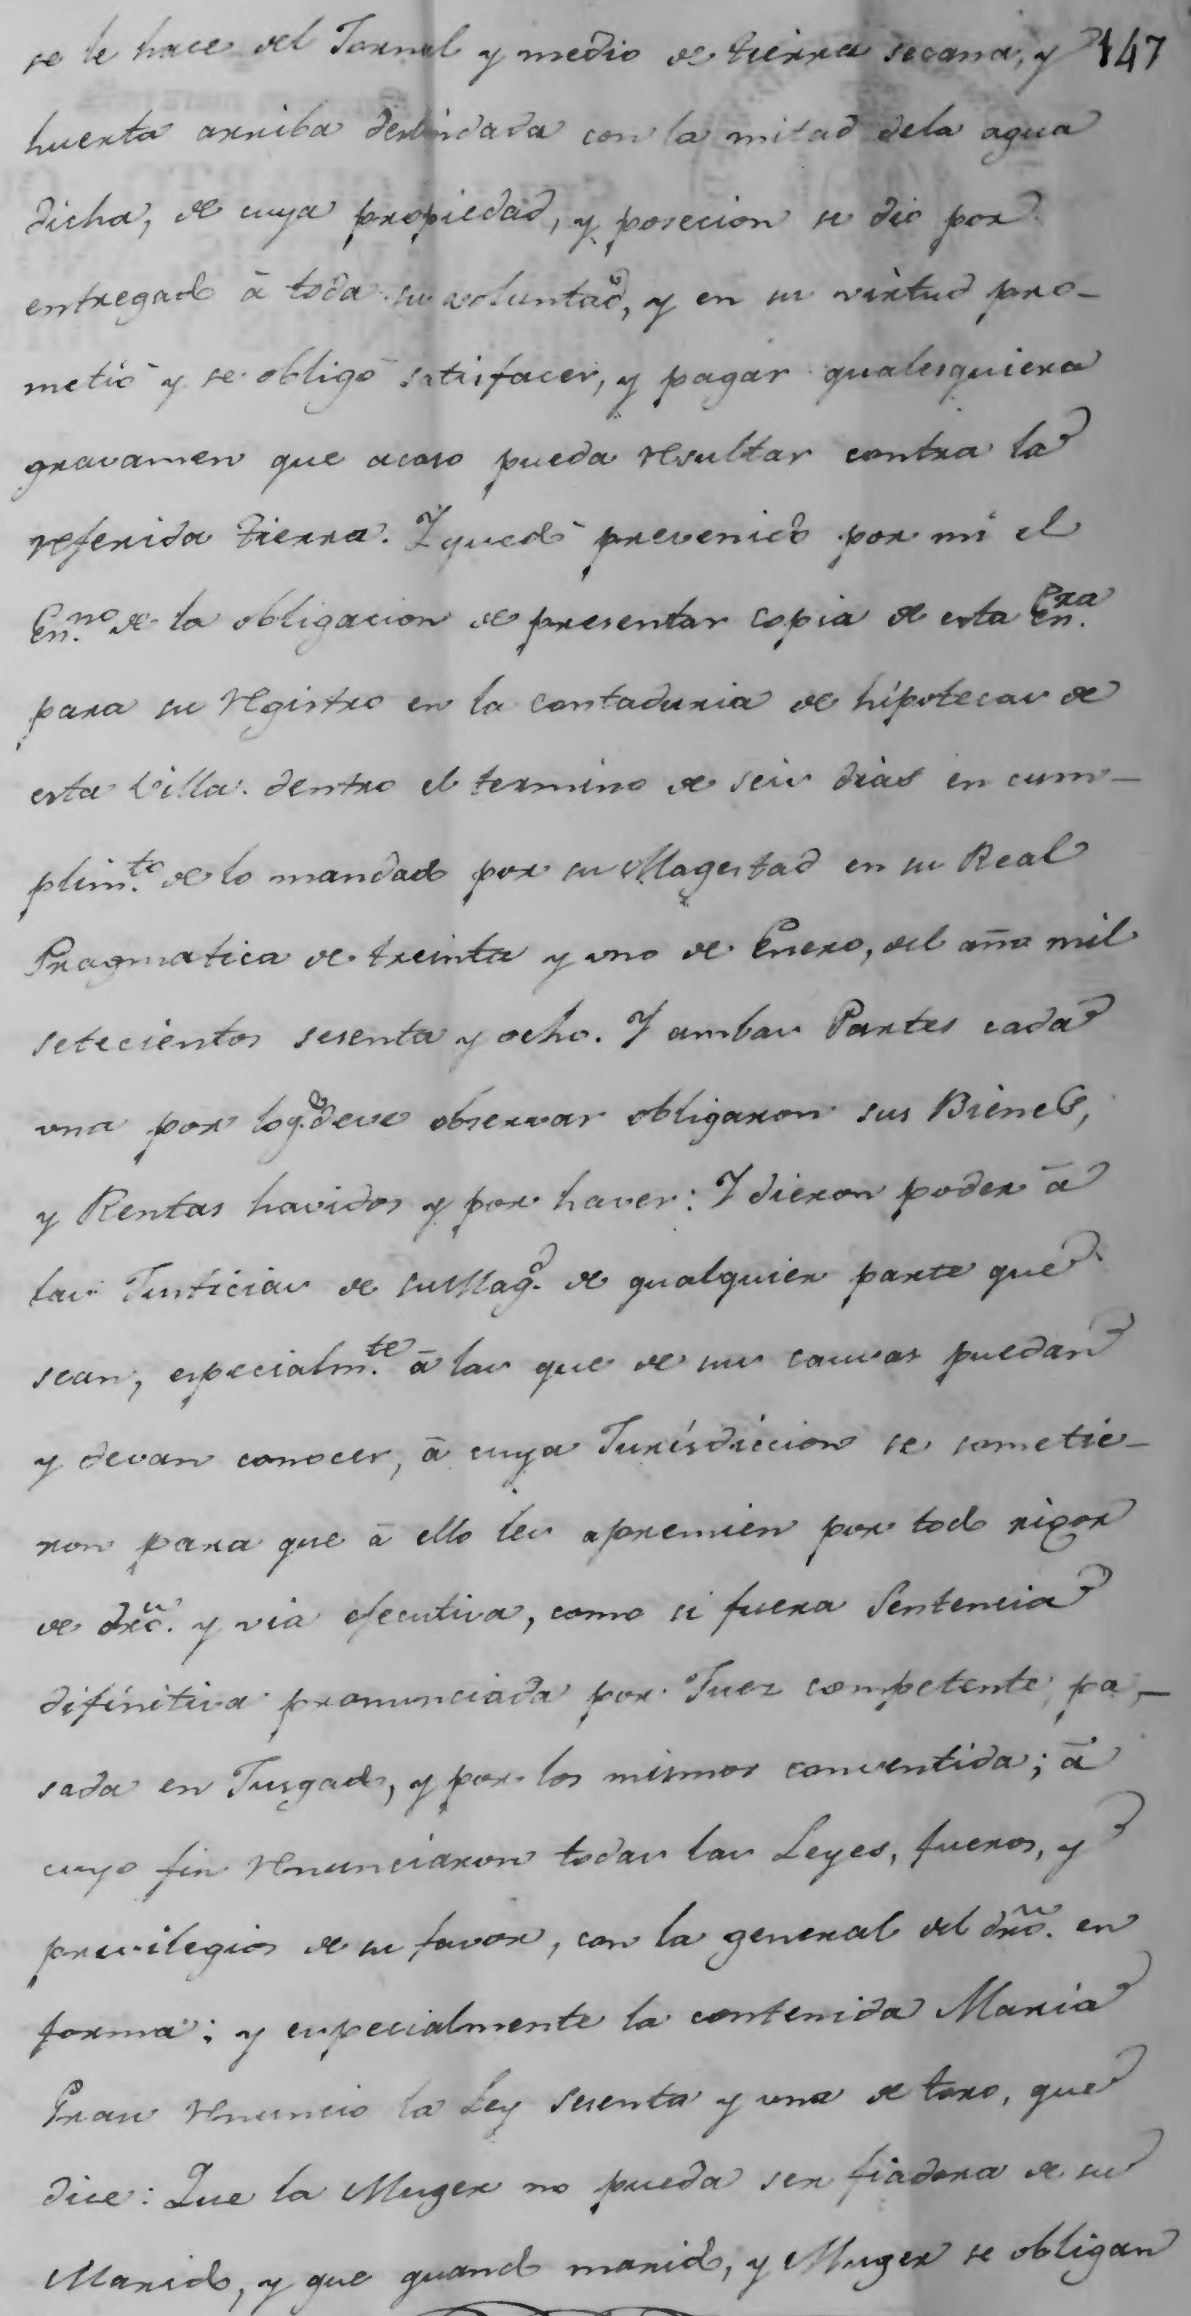 se le hace del Jornal y medio de tierra secana, y 147
huerta arriba deslindada con la mitad dela agua
dicha, de cuya propiedad, y posecion se dio por
entregado à toda su voluntad, y en su virtud pro-
metió y se obligó satisfacer, y pagar qualesquiera
gravamen que acaso pueda resultar contra la
referida tierra. Y quedó prevenido por mi el
Esn.no de la obligacion de presentar copia de esta Esn.ra
para su registro en la contaduria de hipotecas de
esta Villa dentro el termino de seis dias en cum-
plim.to de lo mandado por su Magestad en su Real
Pragmatica de treinta y uno de Enero, del año mil
setecientos sesenta y ocho. Y ambas Partes cada
una por loq.e deve observar obligaron sus Bienes,
y Rentas havidos y por haver: Y dieron poder à
las Justicias de suMag.d de qualquier parte que
sean, especialm.te à las que de sus causas puedan
y devan conocer, à cuya Jurisdiccion se sometie-
ron para que à ello les apremien por todo rigor
de dro. y via ejecutiva, como si fuera Sentencia
difinitiva pronunciada por Juez competente, pa-
sada en Jusgado, y por los mismos consentida; à
cuyo fin renunciaron todas las Leyes, fueros, y
privilegios de su favor, con la general del dro. en
forma; y especialmente la contenida Maria
Grau renuncio la Ley sesenta y una de toro, que
dice: Que la Muger no pueda ser fiadora de su
Marido, y que quando marido, y Muger se obligan